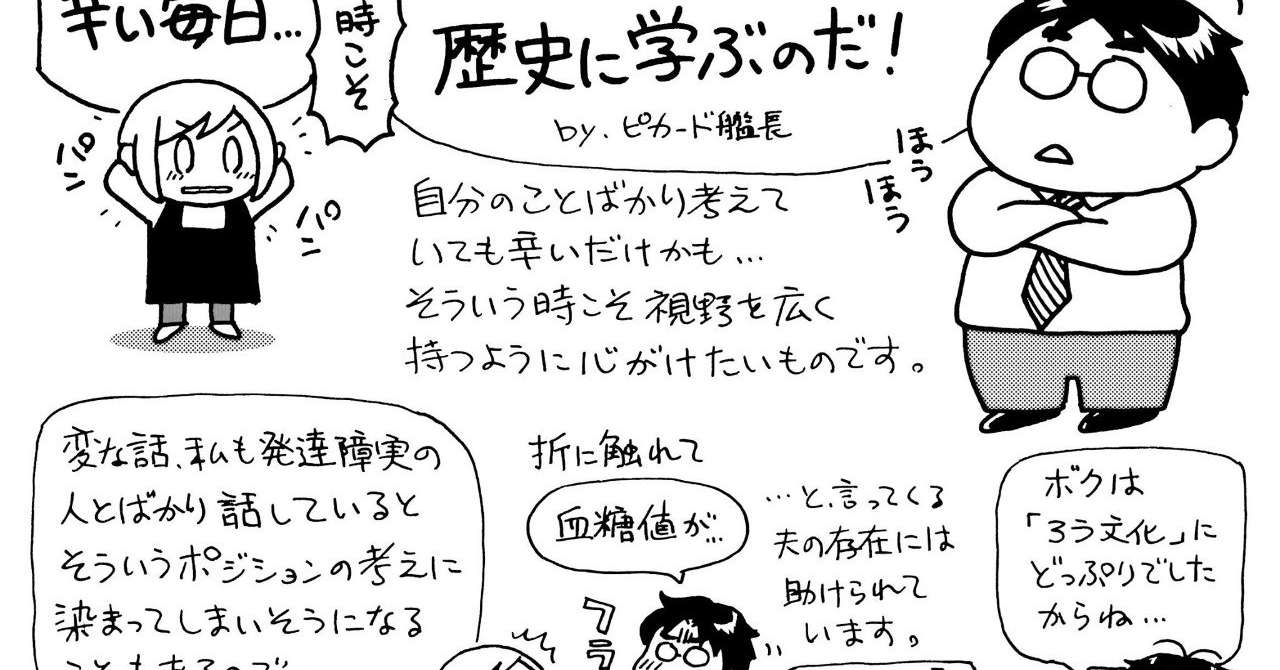 辛い毎日…
時こそ
歴史に学ぶのだ！
by.ピカード艦長
パ
パ
ほう
ほう
自分のことばかり考えて
いても辛いだけかも…
そういう時こそ視野を広く
持つように心がけたいものです。
変な話、私も発達障実の
人とばかり話していると
そういうポジションの考えに
染まってしまいそうになる
こともあるので
折に触れて
血糖値が…
…と、言ってくる
夫の存在には
助けられて
います。
フラ
ボクは
「ろう文化」に
どっぷりでした
からね…